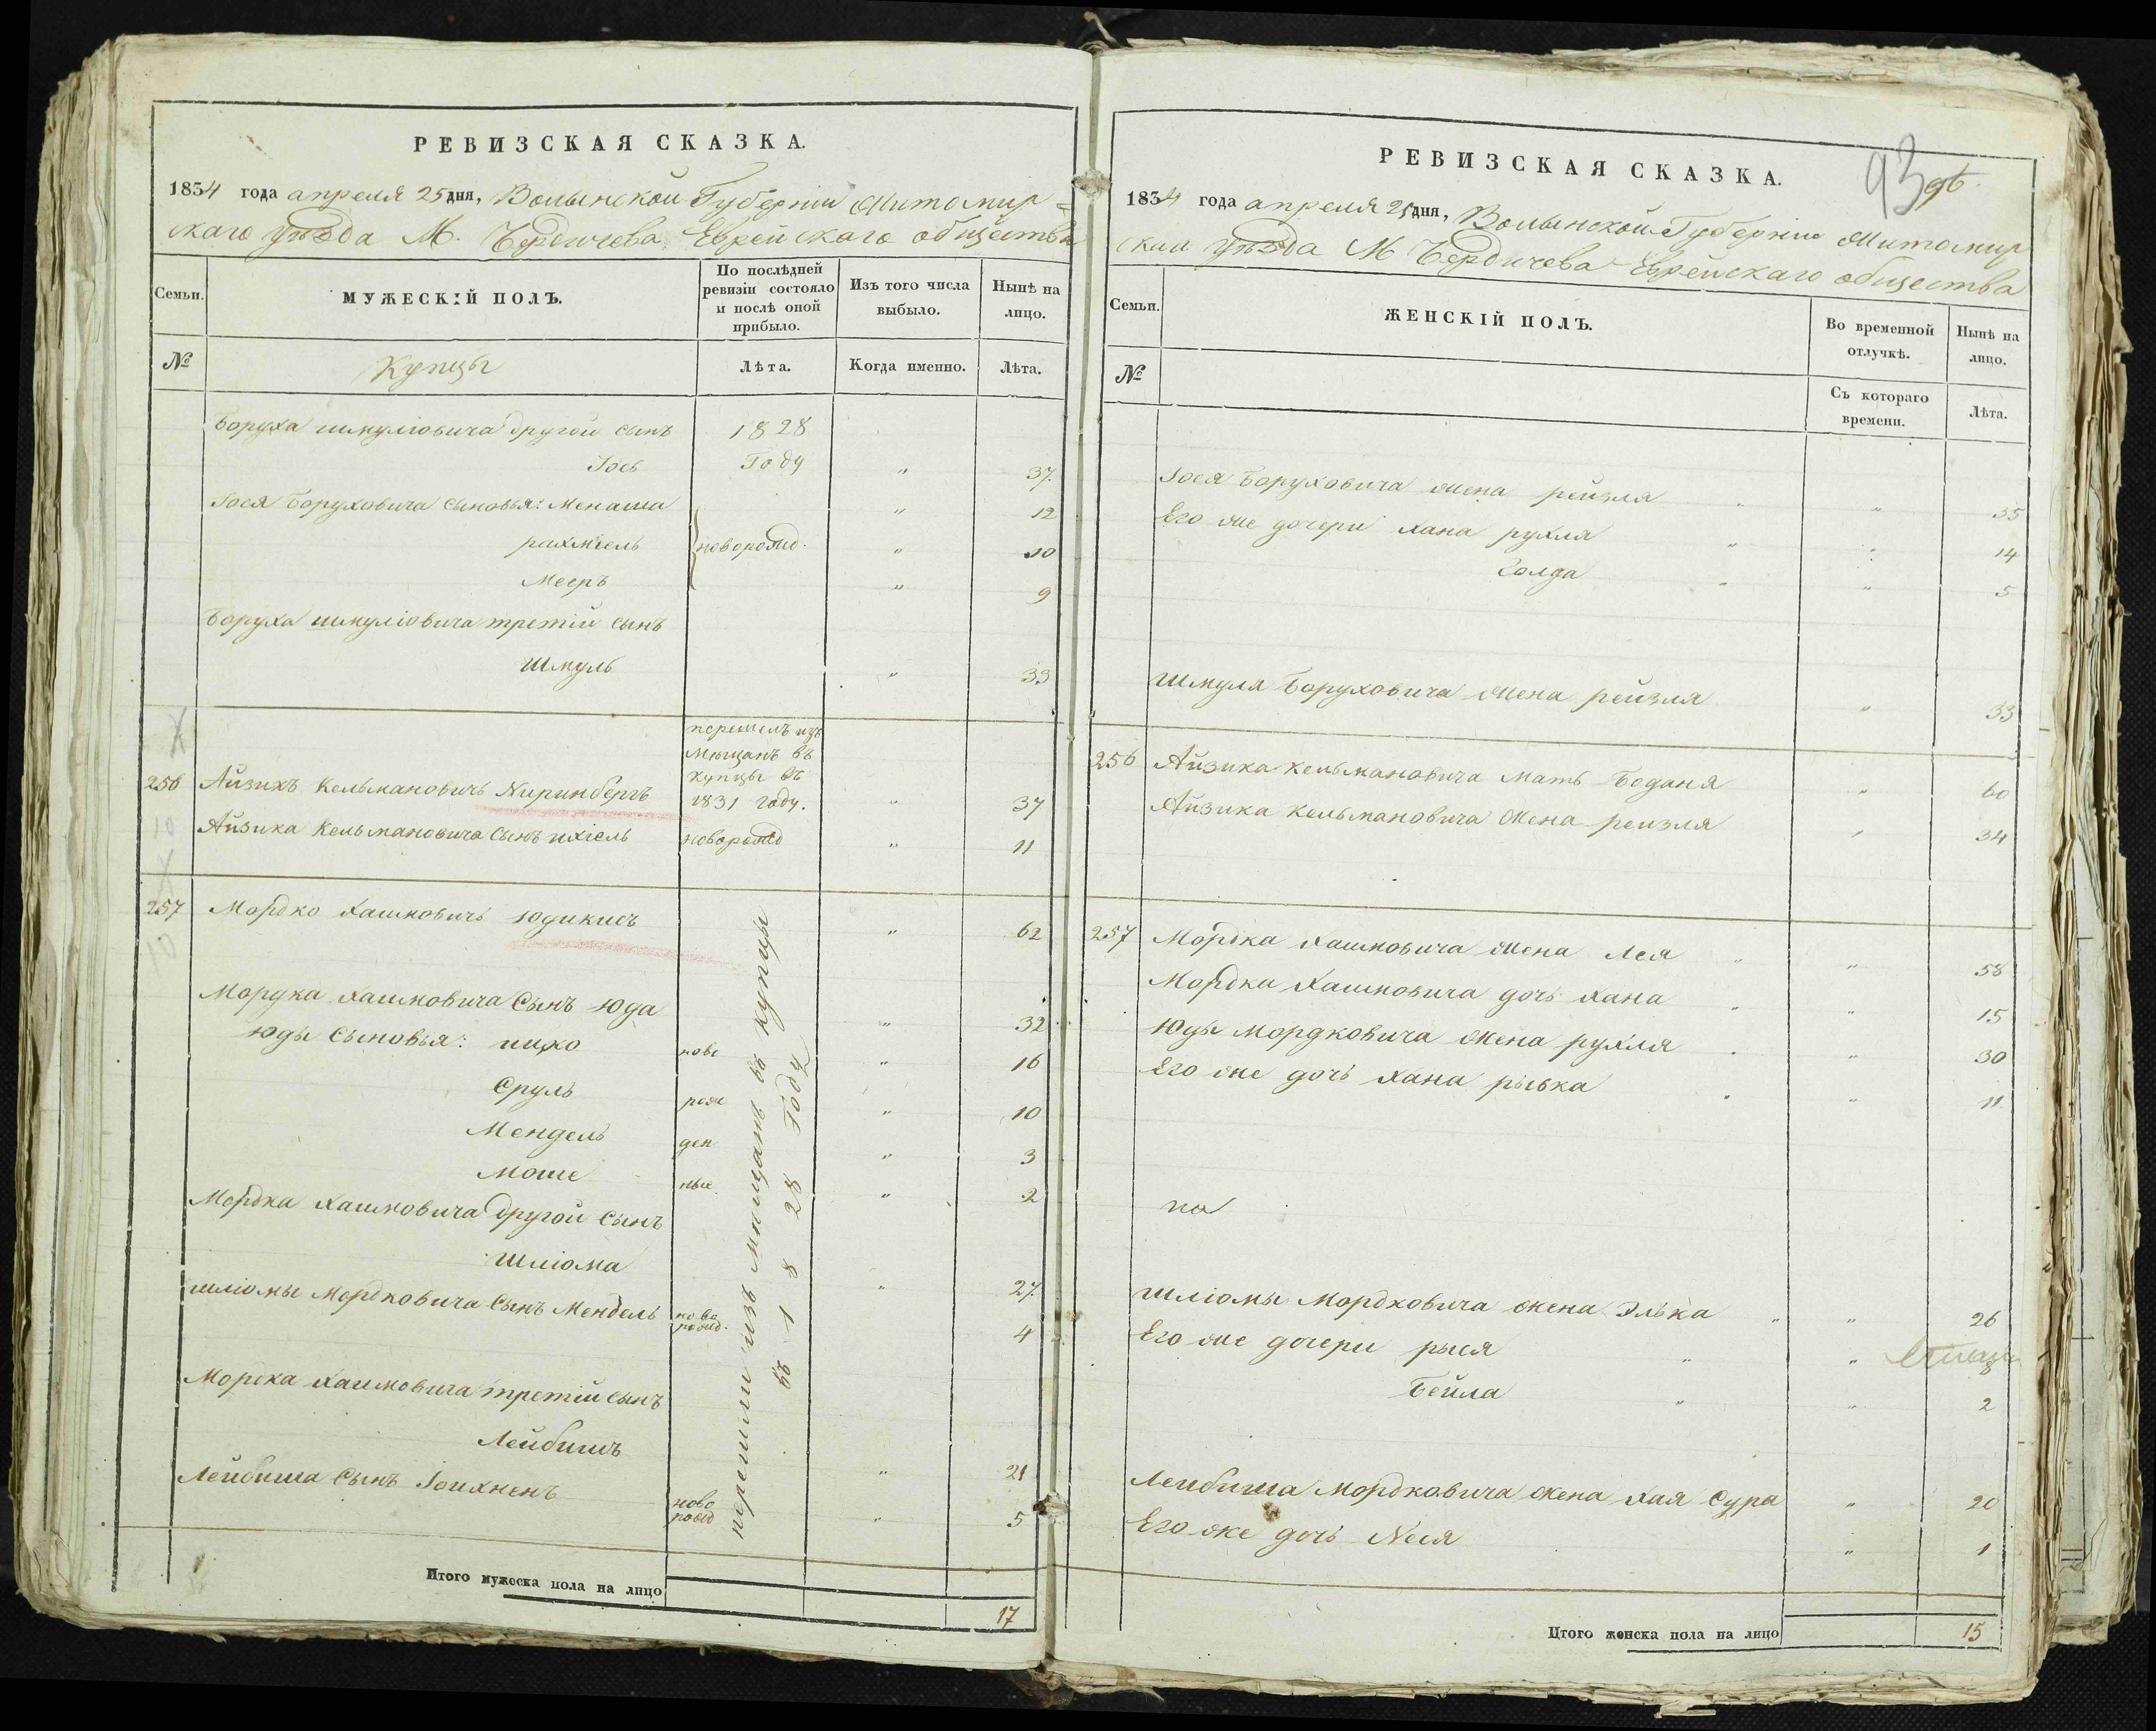 РЕВИЗСКАЯ СКАЗКА.
1834 года апреля 25 дня, Волынской Губерніи Житомир=
скаго уѣзда М. Бердичева Еврейскаго общества
Семьи.
МУЖЕСКІЙ ПОЛЪ.
По послѣдней
ревизіи состояло
и послѣ оной
прибыло.
Изъ того числа
выбыло.
Нынѣ на
лицо.
№
Купцы
Лѣта.
Когда именно.
Лѣта.
Боруха Шмуліовича другой сынъ 1828
Іось Году " 37
Іося Боруховича сыновья: Менаша " 12
рахміель новорожд. " 10
Мееръ " 9
Боруха шмуліовича третій сынъ
Шмуль " 33
перешелъ изъ
Мѣщанъ въ
купцы въ
256 Айзикъ Кельмановичъ Ниринбергъ 1831 году. " 37
Айзика Кельмановича Сынъ ихіель новорожд " 11
257 Мордко Хаимовичъ Юдикисъ " 62
Мордка Хаимовича Сынъ Юда " 32
Юды Сыновья: ицко ново " 16
Сруль рож " 10
Мендель ден " 3
Моше ные " 2
Мордка Хаимовича другой Сынъ
Шліома " 27
шліомы Мордковича Сынъ Мендель ново
рожд. 4
Мордка Хаимовича третій сынъ
Лейбишъ " 21
Лейбиша Сынъ Іоихненъ ново
рожд " 5
перешли изъ мѣщанъ въ купцы
въ 1828 Году
Итого мужеска пола на лицо
17
РЕВИЗСКАЯ СКАЗКА.
93 96.
1834 года апреля 25 дня, Волынской Губерніи Житомир
скаи уѣзда М Бердичева Еврейскаго общества
Семьи.
ЖЕНСКІЙ ПОЛЪ.
Во временной
отлучкѣ.
Нынѣ на
лицо.
№
Съ котораго
времени.
Лѣта.
Іося Боруховича жена рейзля " " 35
Его же дочери хана рухля " " 14
Голда " " 5
Шмуля Боруховича жена рейзля " 33
256 Айзика Кельмановича Мать Богданя " 60
Айзика Кельмановича Жена рейзля " 34
257 Мордка Хаимовича жена Лея " " 58
Мордка Хаимовича дочь хана " " 15
Юды Мордковича жена рухля " " 30
Его же дочь хана рывка " " 11
Шліомы Мордковича жена Элька " " 26
Его же дочери рыся " "
Бейла " " 2
Лейбиша Мордковича жена хая Сура " 20
Его же дочь Неся " 1
Итого женска пола на лицо
15